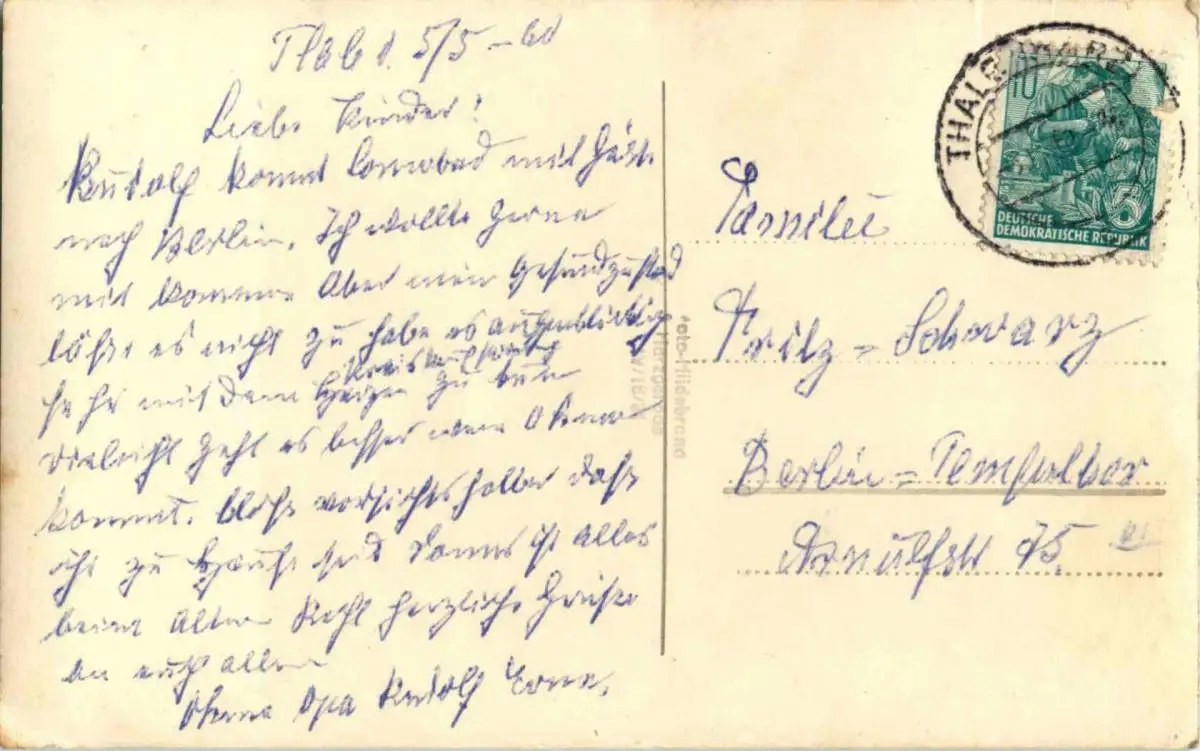 5/5-60
Liebe Kinder!
Rudolf kommt Sonnabend mit
nach Berlin. Ich wollte gerne
mit kommen Aber mein Gesundzustad
läßt es nicht zu habe es augenblicklich
sehr mit dem Herzen zu tun
Kreislaufstörung
vieleicht geht es besser wenn
kommt. bloß vorsichtshalber daß
ihr zu Hause seid sonnst ist alles
beim Alten Recht herzliche Grüße
an euch allen
Opa Rudolf Erna.
Familie
Fritz-Schwarz
Berlin-Tempelhof
Arnulfstr 75
Foto-Hildebrand
Harzgerode
THALE (HARZ)
10
DEUTSCHE
DEMOKRATISCHE REPUBLIK
5